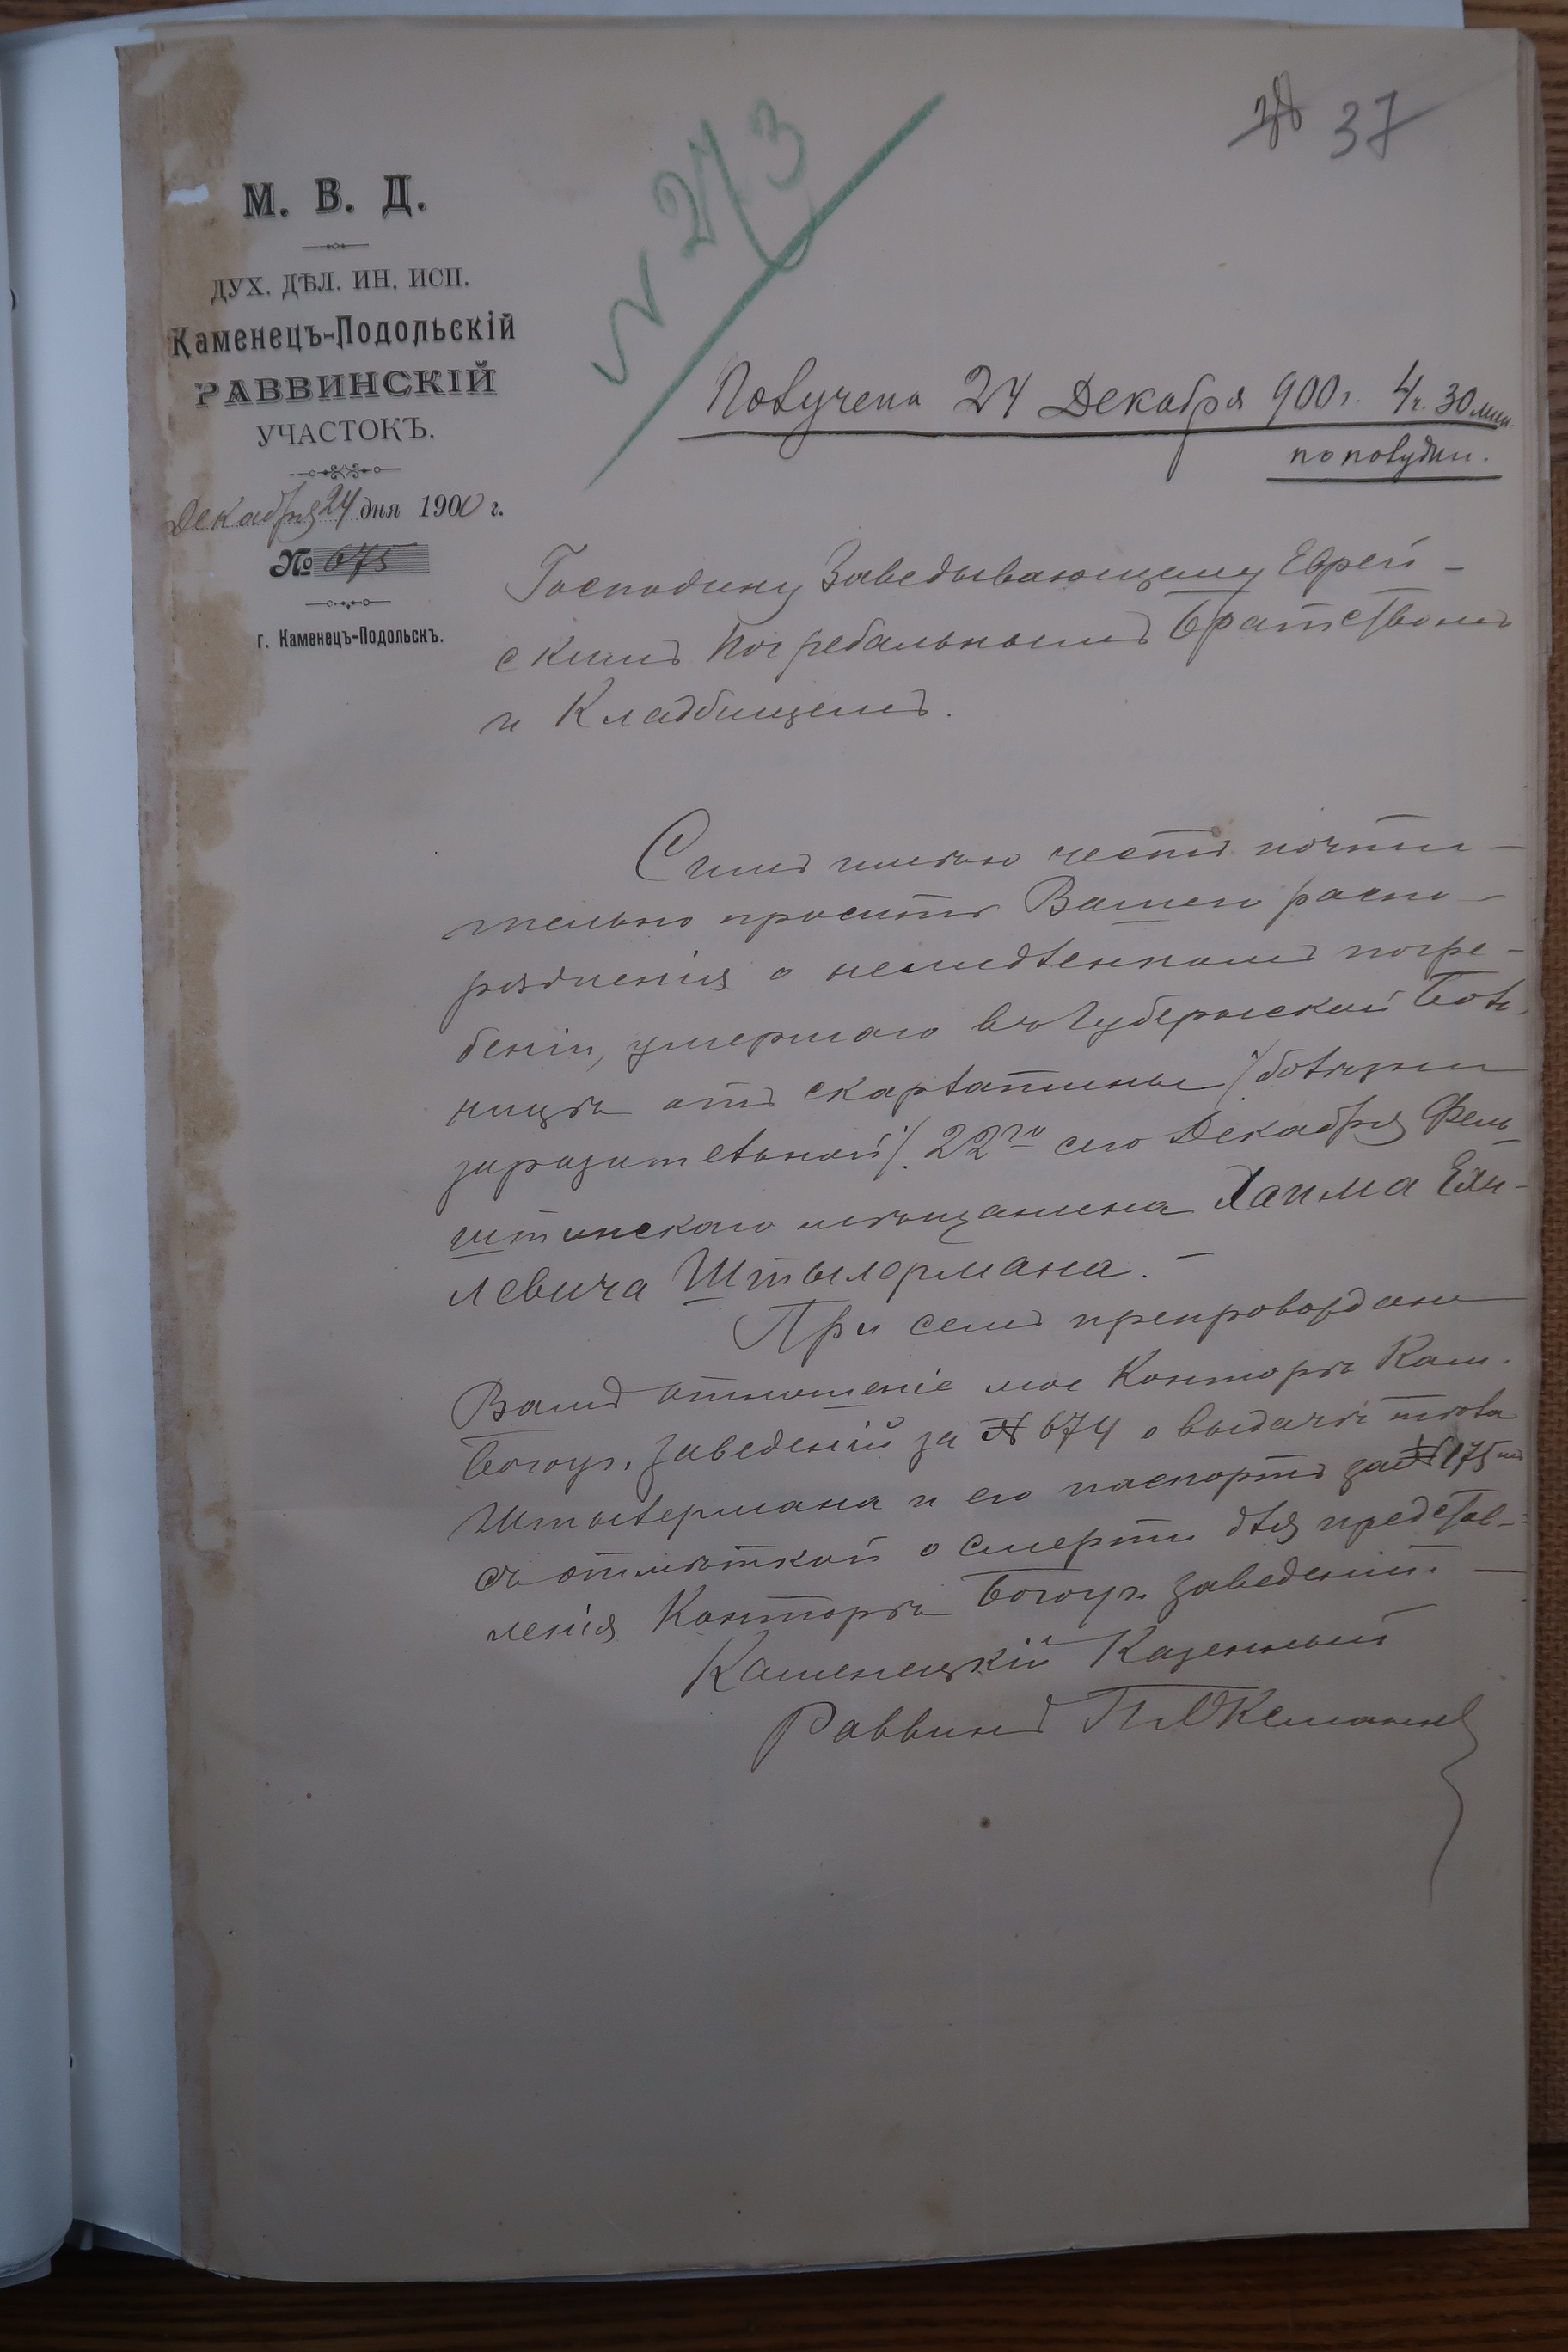 37
№ 273
М. В. Д.
ДУХ. ДѢЛ. ИН. ИСП.
Каменецъ-Подольскій
РАВВИНСКІЙ
УЧАСТОКЪ.
Декабря 24 дня 1900 г.
№ 675
г. Каменецъ-Подольскъ.
Получена 24 Декабря 900 г. 4 ч. 30 мин.
по полудни.
Господину Заведывающему Еврей-
скимъ Погребальнымъ Братствомъ
и Кладбищемъ.
Симъ имѣю честь почти-
тельно просить Вашего распо-
ряженія о немедленномъ погре-
беніи, умершаго въ Губернской Боль-
ницѣ отъ скарлатины /болѣзни
заразительной/. 22го сего Декабря Фель-
штинскаго мѣщанина Хаима Ель-
левича Штыльермана. –
При семъ препровождаю
Вамъ отношеніе мое Конторѣ Кам.
Богоуг. заведеній за № 674 о выдачѣ тѣла
Штыльермана и его паспортъ за № 175
съ отмѣткой о смерти для представ-
ленія Конторѣ Богоуг. заведеній. –
Каменецкій Казенный
Раввинъ